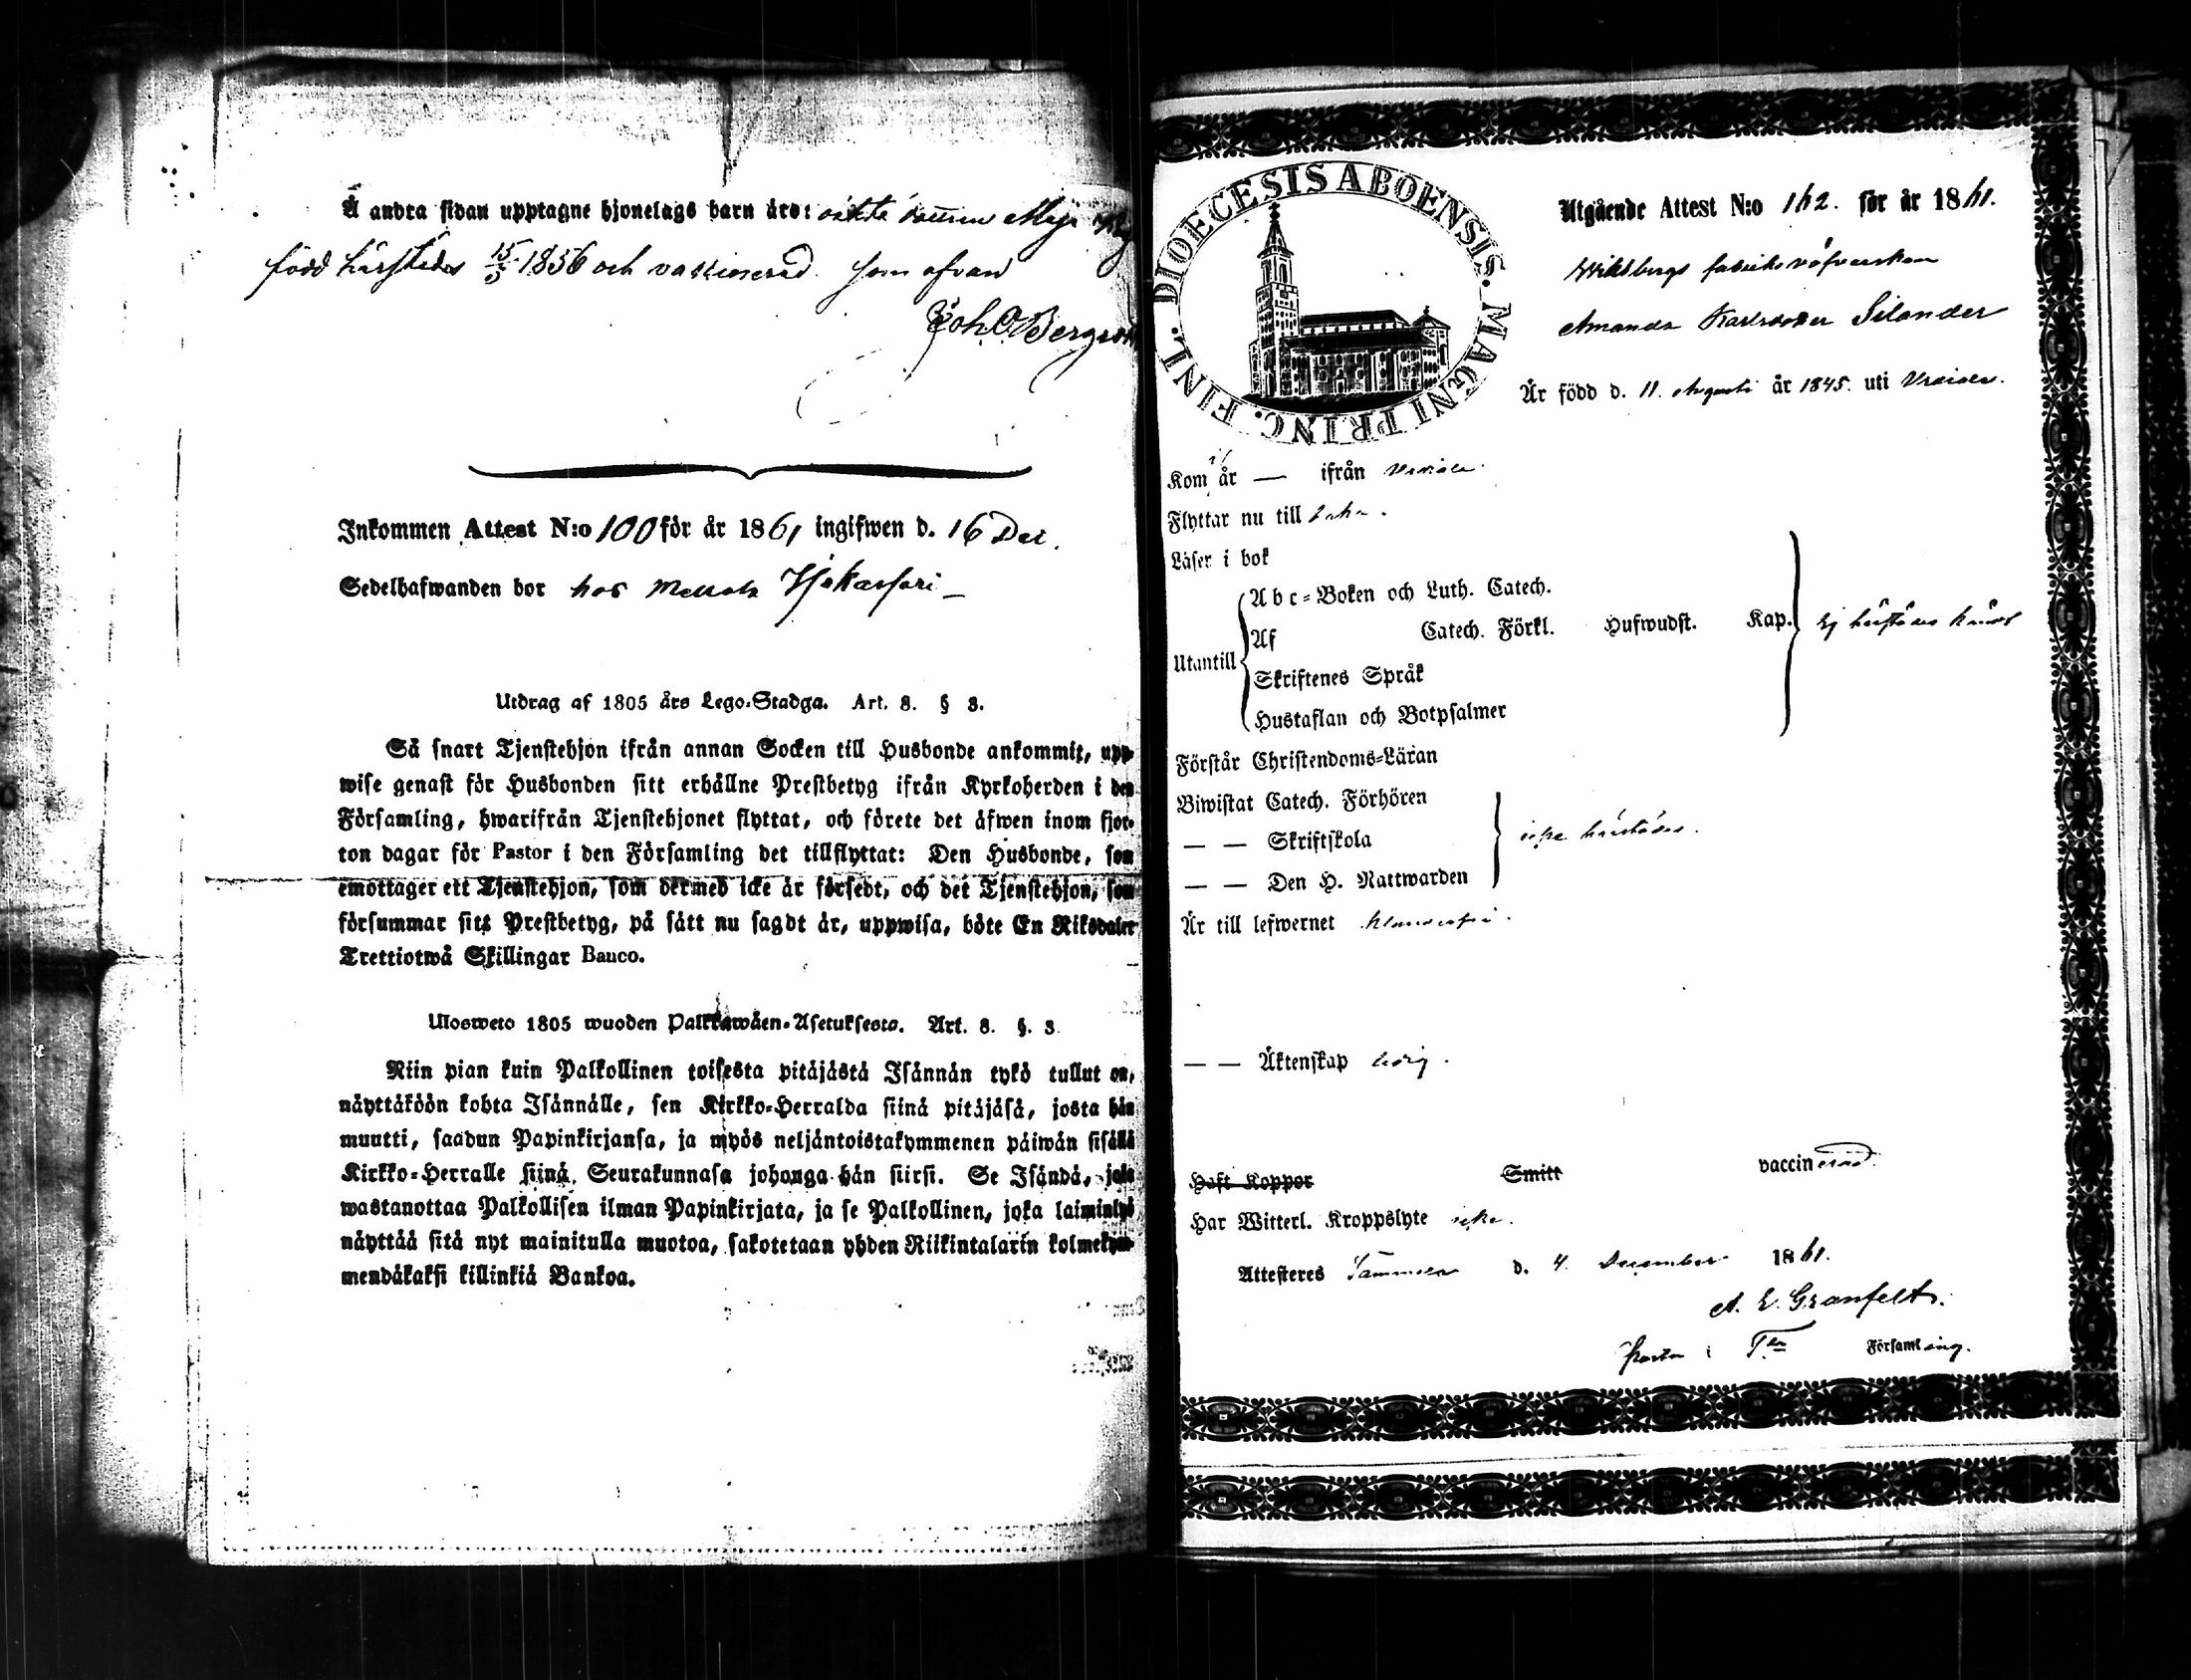 Å andra sidan upptagne hjonelags barn äro: äkta
född härstädes 15/5 1856 och vaccinerad som ofvan
Joh. O. Bergroth
Inkommen Attest N:o 100 för år 1861 ingifwen d. 16 Dec.
Sedelhafwanden bor hos
Utdrag af 1805 års Lego-Stadga. Art. 8. § 3.
Så snart Tjenstehjon ifrån annan Socken till Husbonde ankommit, upp-
wise genast för Husbonden sitt erhållne Prestbetyg ifrån Kyrkoherden i den
Församling, hwarifrån Tjenstehjonet flyttat, och förete det äfwen inom fjor-
ton dagar för Pastor i den Församling det tillflyttat: Den Husbonde, som
emottager ett Tjenstehjon, som dermed icke är försedt, och det Tjenstehjon, som
försummar sitt Prestbetyg, på sätt nu sagdt är, uppwisa, böte En Riksdaler
Trettiotwå Skillingar Banco.
Ulosweto 1805 wuoden Palkkawäen-Asetuksesta. Art. 8. §. 3.
Niin pian kuin Palkollinen toisesta pitäjästä Isännän tykö tullut on,
näyttäköön kohta Isännälle, sen Kirkko-Herralda siinä pitäjäsä, josta hän
muutti, saadun Papinkirjansa, ja myös neljäntoistakymmenen päiwän sisällä
Kirkko-Herralle siinä Seurakunnasa johonga hän siirsi. Se Isändä, joka
wastanottaa Palkollisen ilman Papinkirjata, ja se Palkollinen, joka laiminlyö
näyttää sitä nyt mainitulla muotoa, sakotetaan yhden Riikintalarin kolmekym-
mendäkaksi killinkiä Bankoa.
DIOECESIS ABOENSIS. MAGNI PRINC. FINL.
Utgående Attest N:o 162. för år 1861.
fabriks väfverskan
Amanda Karlsdotter Silander
Är född d. 11. Augusti år 1845. uti Urdiala.
Kom år — ifrån Urdiala.
Flyttar nu till
Läser i bok
Utantill
Abc-Boken och Luth. Catech.
Af Catech. Förkl. Hufwudst. Kap. Ej härstädes känd
Skriftenes Språk
Hustaflan och Botpsalmer
Förstår Christendoms-Läran
Biwistat Catech. Förhören
— — Skriftskola icke härstädes.
— — Den H. Nattwarden
Är till lefwernet klanderfri.
— — Äktenskap ledig.
Haft Koppor Smitt vaccinerad.
Har Witterl. Kroppslyte icke.
Attesteres Tammela d. 4. December 1861.
A. E. Granfelt.
Pastor i T:la Församling.